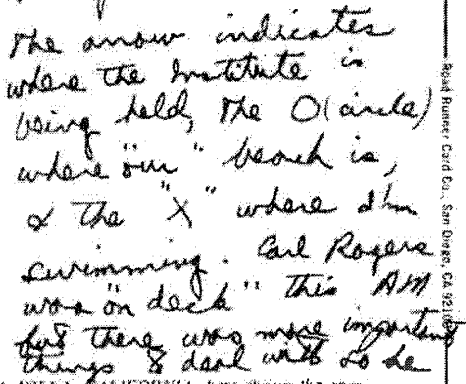 The arrow indicates
where the Institute is
being held, the O(circle)
where "our" beach is,
& the "X" where I'm
swimming. Carl Rogers
was "on deck" this AM
but there was more important
things to deal with so he
Road Runner Card Co., San Diego, CA 921